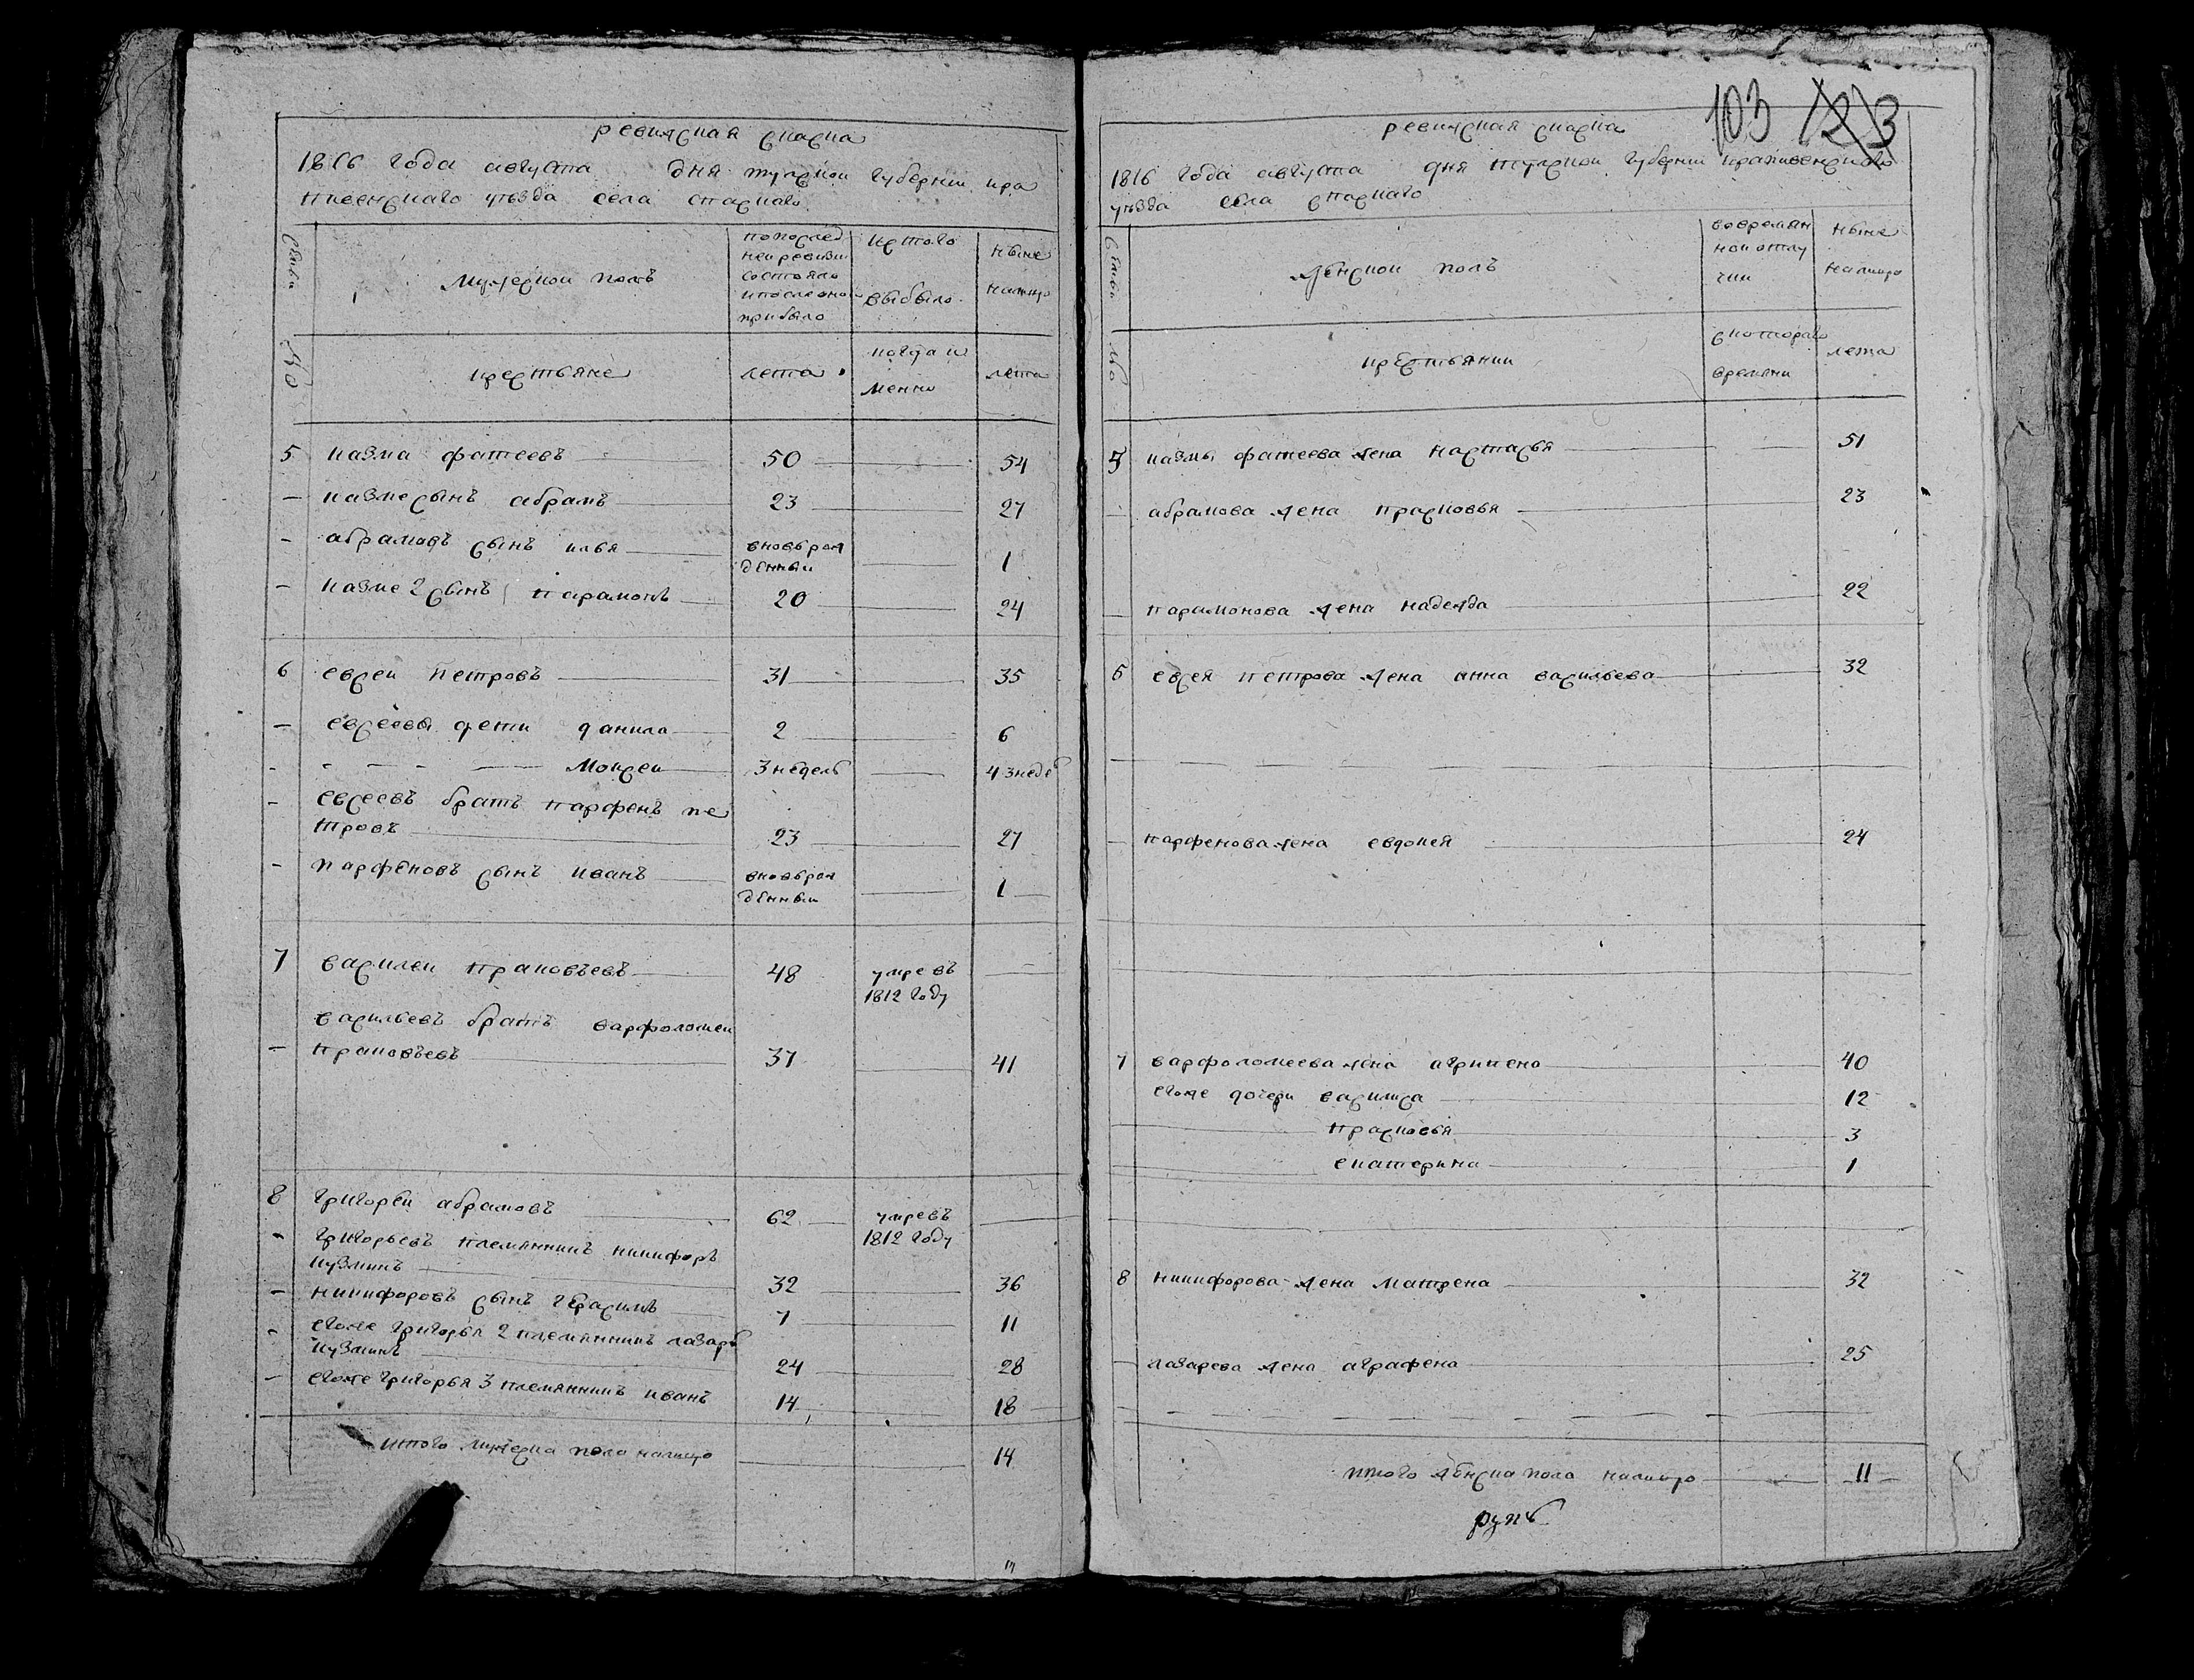 ревиская скаска
1816 года августа дня тулской губернии кра
пиенскаго уезда села спаскаго
семьи
№
мужескои полъ
попослед
неи ревизии
состояло
ипосле оной
прибыло
ис того
выбыло
ныне
налицо
крестьяне
лета
когда и
менно
лета
5 казма фатеевъ 50 54
- казме сынъ абрамъ 23 27
- абрамовъ сынъ илья вновьрож
денныи 1
- казме 2 сынъ парамонъ 20 24
6 евсеи петровъ 31 35
- евсеевы дети данила 2 6
- - - - Моисеи 3 недель 4 3 недел
- евсеевъ братъ парфенъ пе
тровъ 23 27
- парфеновъ сынъ иванъ вновьрож
денныи 1
7 василеи пракофьевъ 48 умре въ
1812 году
васильевъ братъ варфоломеи
- пракофьевъ 37 41
8 григореи абрамовъ 62 умре въ
1812 году
- григорьевъ племянникъ никифоръ
кузминъ 32 36
- никифоровъ сынъ герасимъ 7 11
- егоже григорья 2 племянникъ лазарь
кузминъ 24 28
- егоже григорья 3 племянникъ иванъ 14 18
итого мужеска пола налицо 14
103 123
ревиская скаска
1816 года августа дня тулскои губернии крапивенскаго
уезда села спаскаго
семьи
№
женскои полъ
вовремян
нои отлу
чки
ныне
налицо
крестьянки
скотораго
времяни
лета
5 казмы фатеева жена настасья 51
- абрамова жена прасковья 23
- парамонова жена надежда 22
6 евсея петрова жена анна васильева 32
- парфенова жена евдокея 24
7 варфоломеева жена агрипена 40
егоже дочери василиса 12
прасковья 3
екатерина 1
8 никифорова жена матрена 32
- лазарева жена аграфена 25
итого женска пола налицо 11